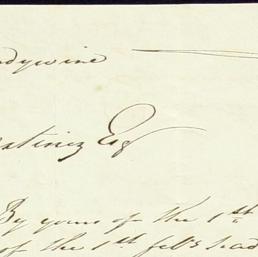 dywine
atinez Esqr
By yours of the 1st
of the 1st feb's